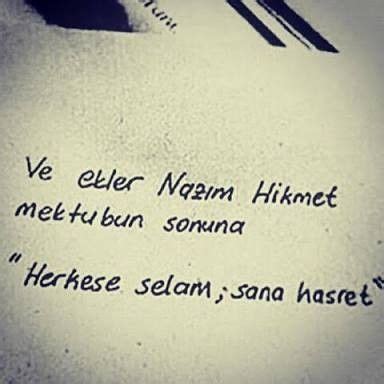 Ve ekler Nazım Hikmet
mektubun sonuna
"Herkese selam; sana hasret"